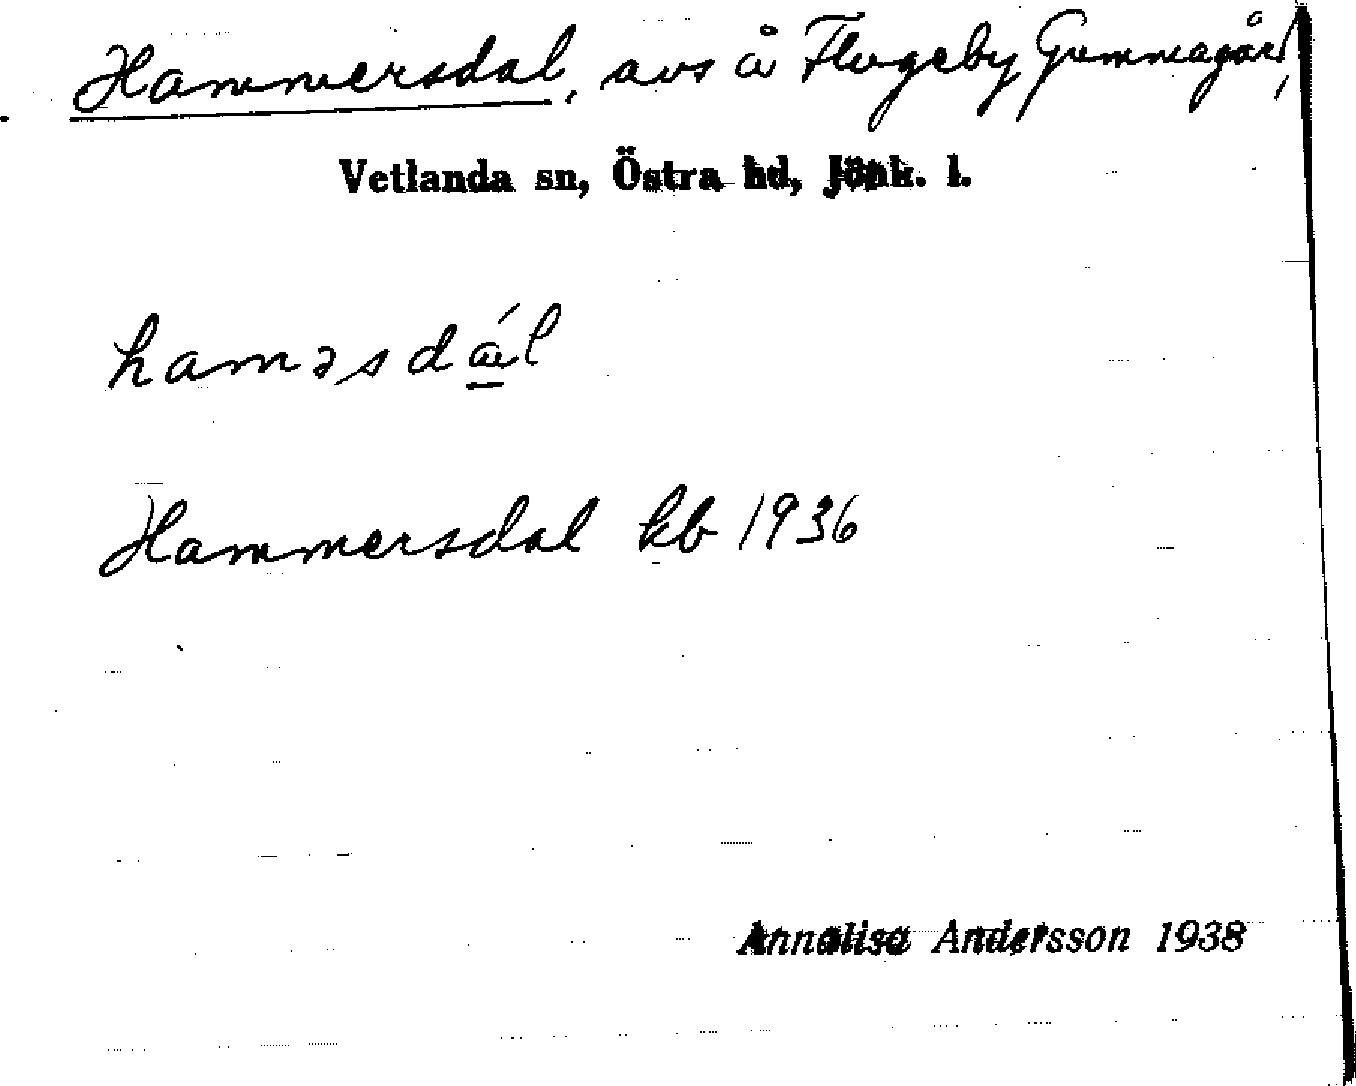 Hammersdal, avs å Flugeby Gummagård,
Vetlanda sn, Östra hd, Jönk. l.
haməsdál
Hammersdal kb 1936
Annalisa Andersson 1938